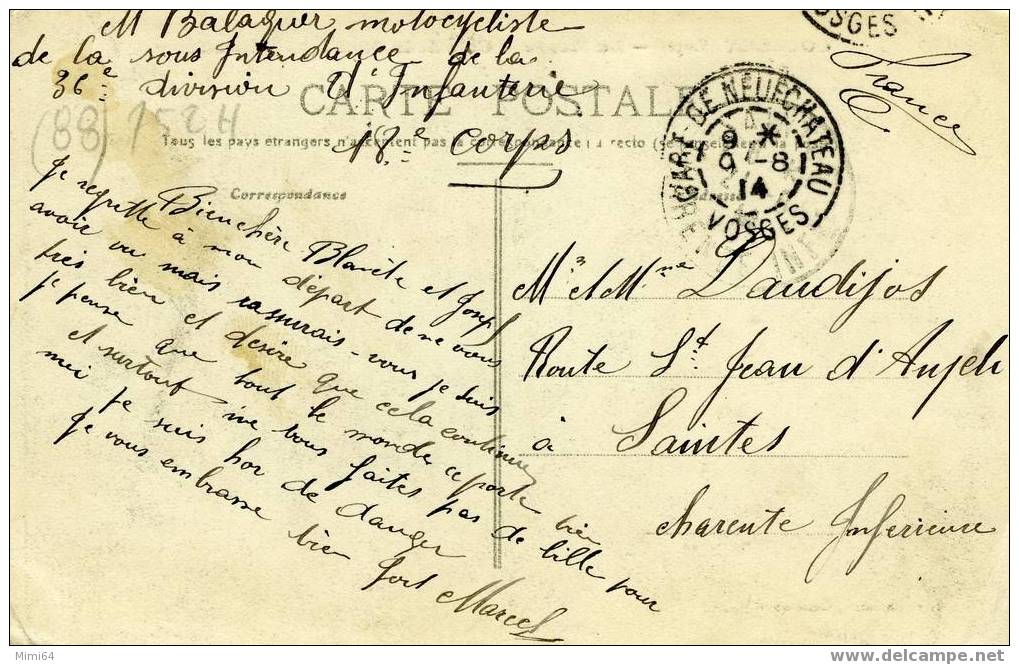 M Balaguer motocycliste
de la sous Intendance de la
36e division d'Infanterie
18e Corps
France
VOSGES
(88) 152 H
CARTE POSTALE
Tous les pays étrangers n'acceptent pas la correspondance au recto (se renseigner à la
Correspondance
Adresse
GARE DE NEUFCHATEAU
9 *
9 - 8
14
VOSGES
Bien chère Blanche et Joseph
Je regrette à mon départ de ne vous
avoir vu mais rassurais-vous je suis
très bien et desire que cela continue
je pense que tout le monde ce porte bien
et surtout ne vous faites pas de bille pour
moi je suis hor de danger
Je vous embrasse bien fort Marcel
Mr et Mme Daudijos
Route St Jean d'Angeli
à Saintes
Charente Inferieure
Mimi64
http://www.delcampe.net